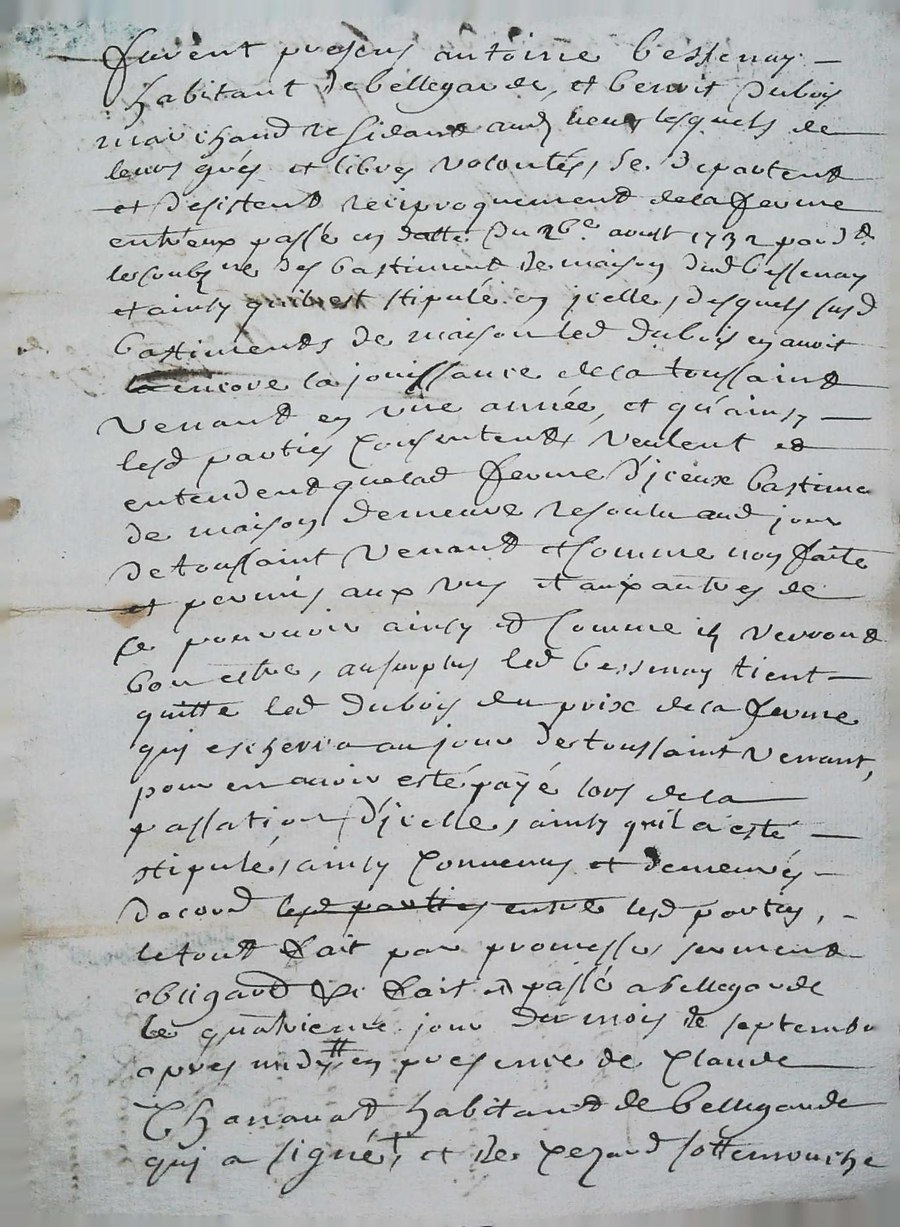 furent presens antoine bessenay
habitant de bellegarde, et benoit dubois
marchand residant aud lieu lesquels de
leurs grés et libres volontés, se departent
et desistent reciproquement de la ferme
entreux passé en datte du aoust 1732 par d
le soubsne des bastiment de maison dud bessenay
et ainsy quil est stipulé en jcelle, desquels susd
bastiments de maison led dubois en avoit
encore la jouissance de la toussaint
venant en une année, et qu'ainsy
lesd parties consentent veulent et
entendent que lad ferme d'jceux bastime
de maison demeure resolu aud jour
de toussaint venant et comme non faite
et permis aux uns et aux autres de
se pourvoir ainsy et comme ils verront
bon estre, au surplus led bessenay tient
quitte led dubois du prix de la ferme
qui escherra au jour de toussaint venant,
pour en avoir esté payé lors de la
passation d'jcelle, ainsy quil a esté
stipulé, ainsy convenus et demeurés
dacord lesd parties entre lesd parties,
le tout fait par promesses serment
obligaõn fait et passé a bellegarde
le quatrieme jour du mois de septembre
apres midy en presence de Claude
habitant de bellegarde
qui a signé, et de